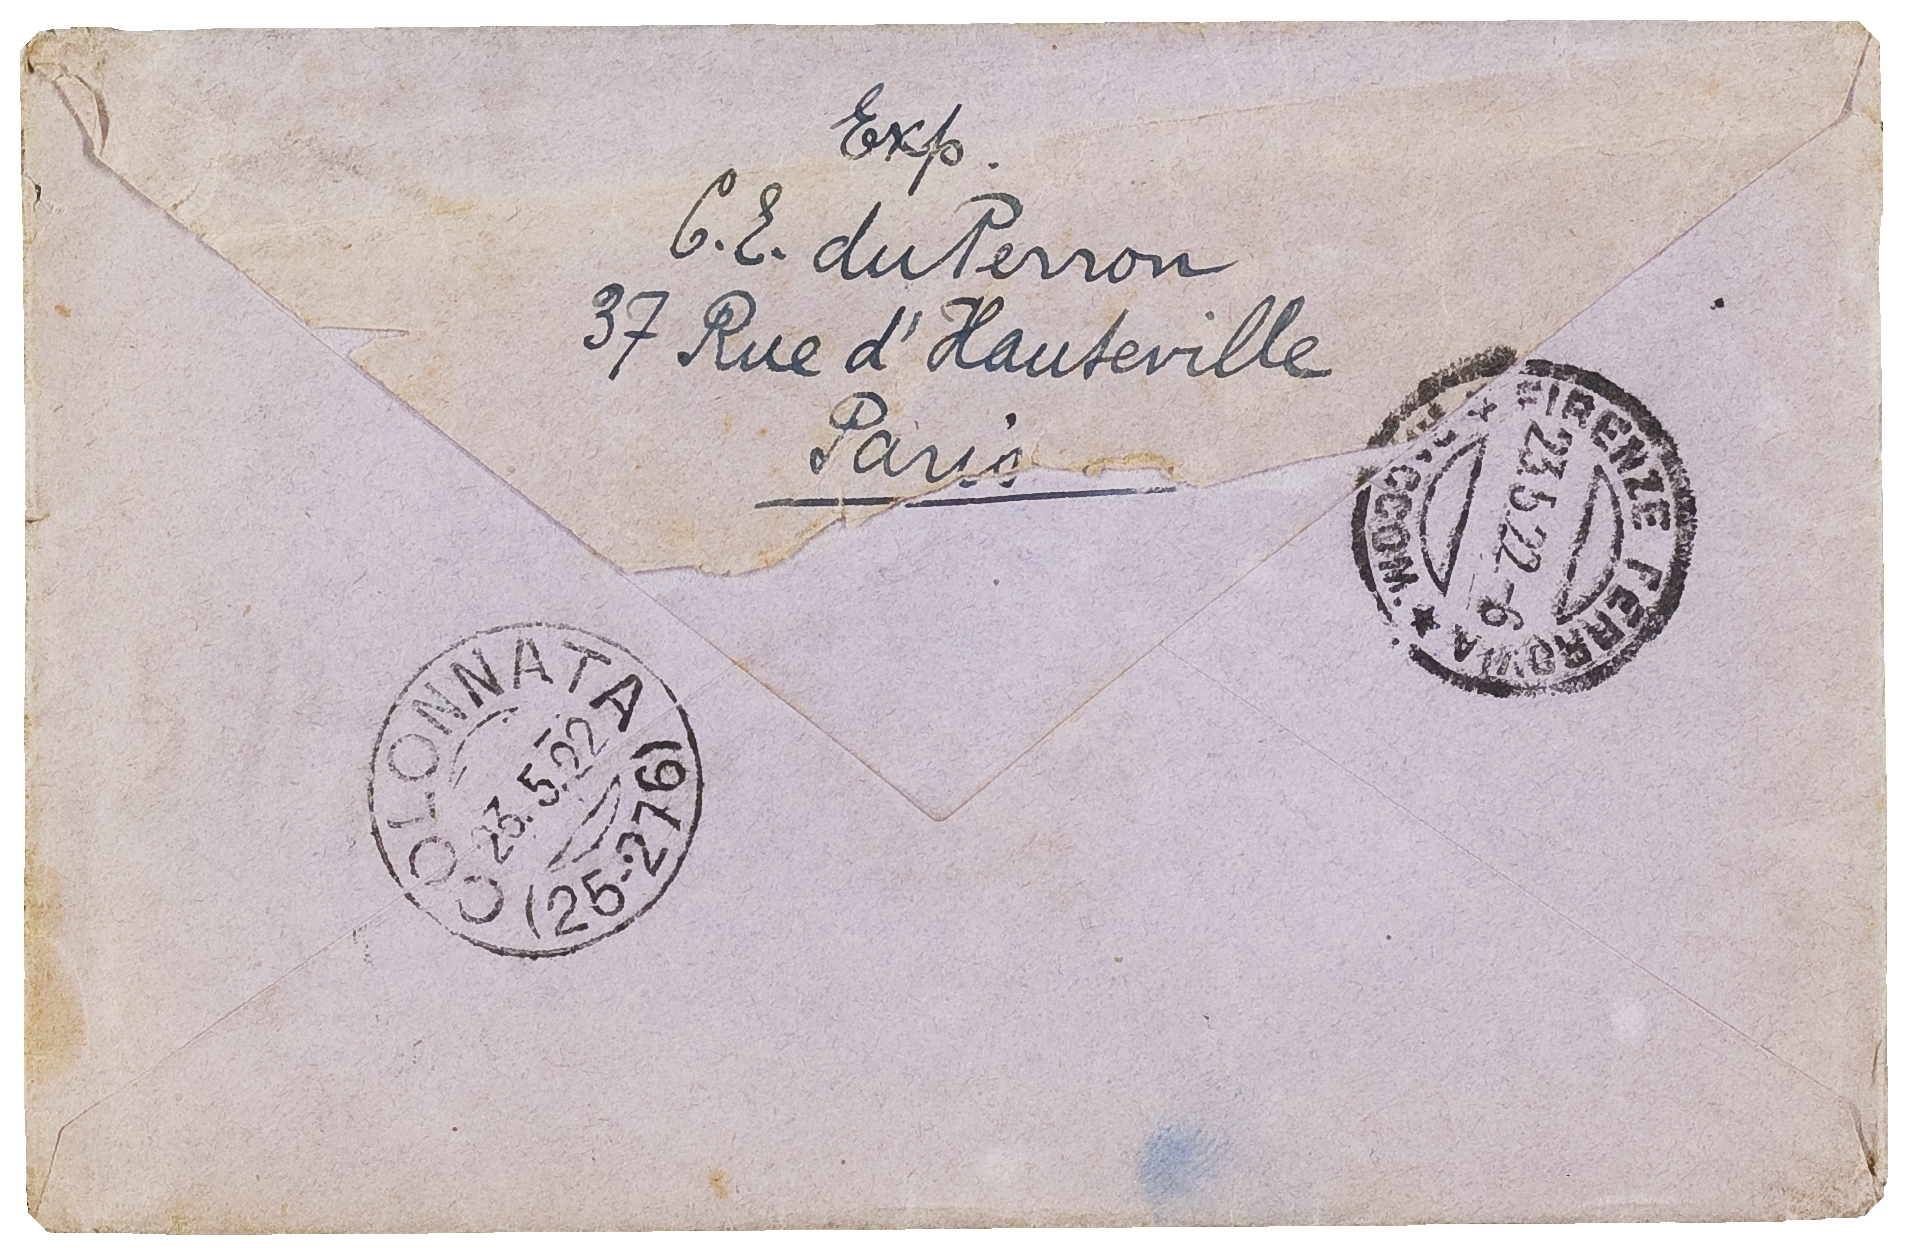 Exp.
C. E. du Perron
37 Rue d'Hauteville
Paris
FIRENZE FERROVIA ★ RACCOM. ★
23.5.22-6
COLONNATA
23.5.22
(25-276)